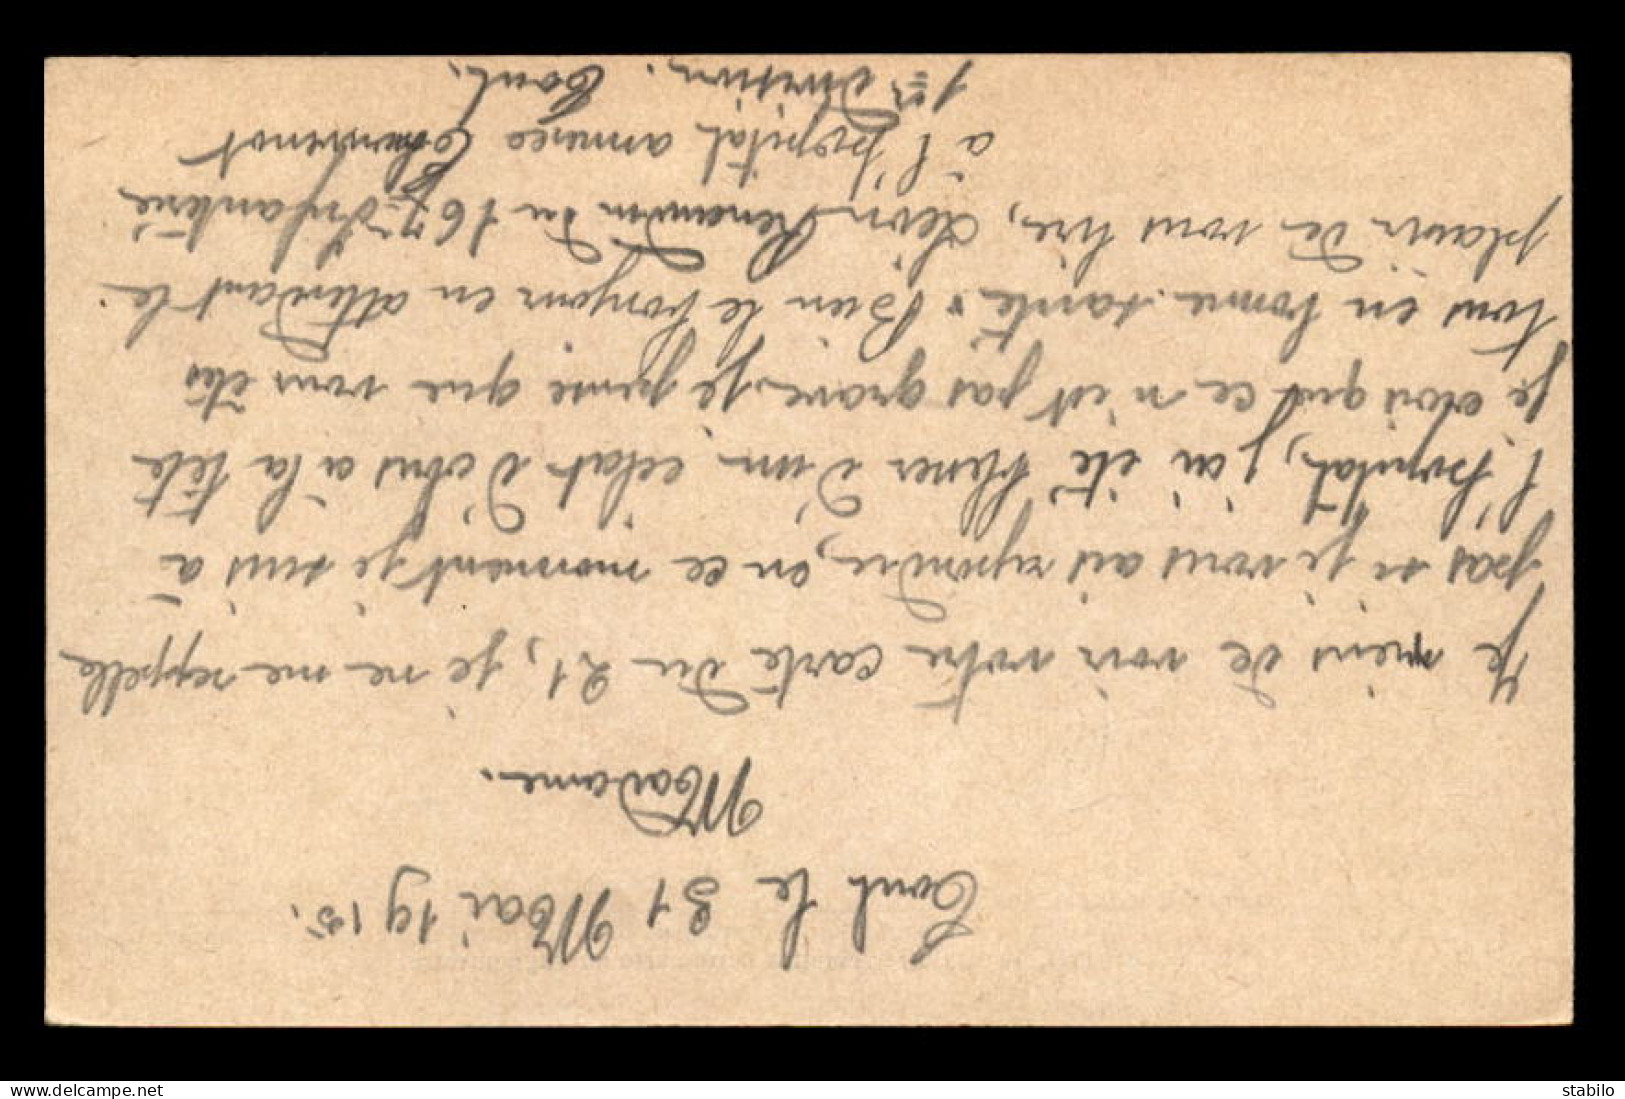 Toul le 31 Mai 1915.
Madame.
Je viens de voir votre carte du 21, je ne me reppelle
pas si je vous ais repondre, en ce momment je suis à
l'hopital, j'ai été blesser d'un eclat d'obus a la tête
je crois que ce n'est pas grave. je pense que vous êtes
tous en bonne santé. Bien le bonjour en attendant le
plaisir de vous lire, Léon Renaudin du 167e Infanterie
à l'hopital annexe
1ere division. Toul.
delcampe.net
stabilo